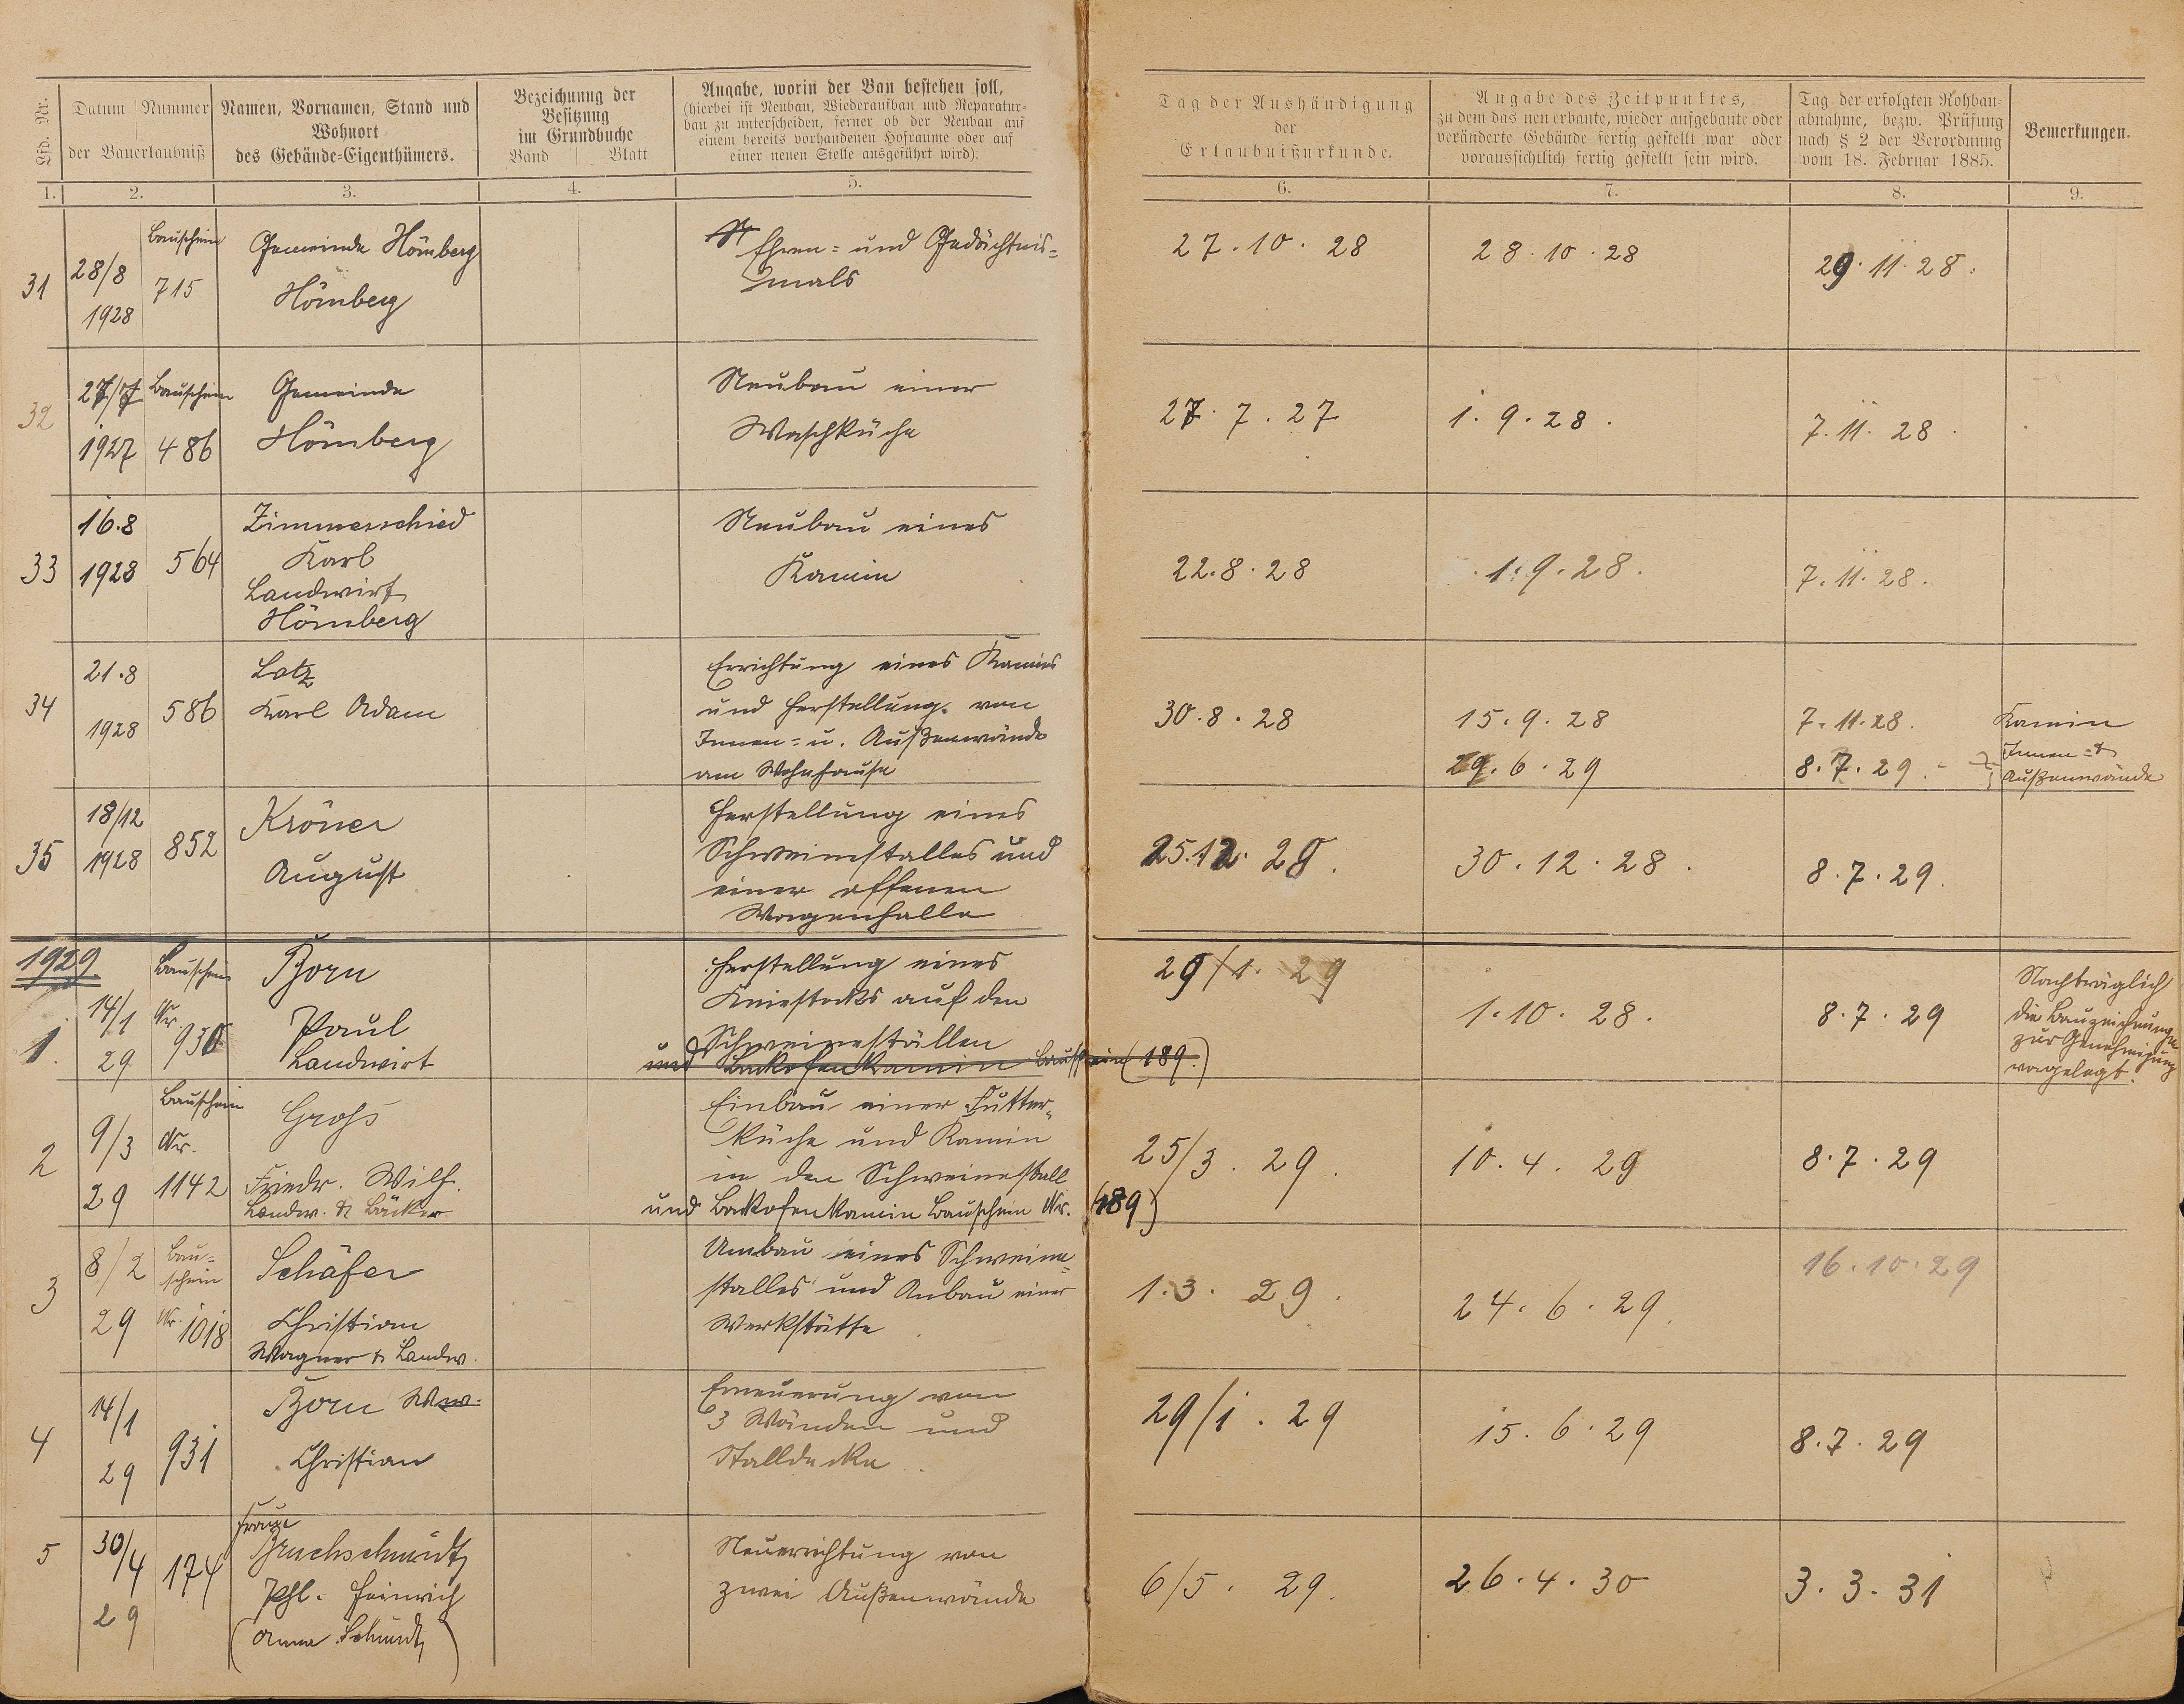 Lfd. Nr.
Datum Nummer
der Bauerlaubniß
Namen, Vornamen, Stand und
Wohnort
des Gebäude-Eigenthümers.
Bezeichnung der
Besitzung
im Grundbuche
Band Blatt
Angabe, worin der Bau bestehen soll,
(hierbei ist Neubau, Wiederaufbau und Reparatur-
bau zu unterscheiden, ferner ob der Neubau auf
einem bereits vorhandenen Hofraume oder auf
einer neuen Stelle ausgeführt wird).
Tag der Aushändigung
der
Erlaubnißurkunde.
Angabe des Zeitpunktes,
zu dem das neu erbaute, wieder aufgebaute oder
veränderte Gebäude fertig gestellt war oder
voraussichtlich fertig gestellt sein wird.
Tag der erfolgten Rohbau-
abnahme, bezw. Prüfung
nach § 2 der Verordnung
vom 18. Februar 1885.
Bemerkungen.
1. 2. 3. 4. 5. 6. 7. 8. 9.
31
28/8
1928
Bauschein
715
Gemeinde Hömberg
Hömberg
Ehren= und Gedächtnis=
mals
27.10.28
28.10.28
29.11.28.
32
27/7
1927
Bauschein
486
Gemeinde
Hömberg
Neubau einer
Waschküche
27.7.27
1.9.28.
7.11.28.
33
16.8
1928
564
Zimmerschied
Karl
Landwirt
Hömberg
Neubau eines
Kamin
22.8.28
1.9.28.
7.11.28.
34
21.8
1928
586
Lotz
Karl Adam
Errichtung eines Kamins
und Herstellung von
Innen= u. Außenwände
am Wohnhause
30.8.28
15.9.28
29.6.29
7.11.28.
8.7.29.-
Kamin
Innen= &
Außenwände
35
18/12
1928
852
Kröner
August
Herstellung eines
Schweinestalles und
einer offenen
Wagenhalle
25.12.28.
30.12.28.
8.7.29.
1929
1.
14/1
29
Bauschein
Nr.
930
Born
Paul
Landwirt
Herstellung eines
Kniestocks auf den
Schweineställen
und Backofenkamin Bauschein (189.)
29/1.29
1.10.28.
8.7.29
Nachträglich
die Bauzeichnungen
zur Genehmigung
vorgelegt.
2
9/3
29
Bauschein
Nr.
1142
Groß
Friedr. Wilh.
Landw. & Bäcker
Einbau einer Futter=
küche und Kamin
in den Schweinestall
und Backofenkamin Bauschein Nr. (189)
25/3.29.
10.4.29
8.7.29
3
8/2
29
Bau=
schein
Nr. 1018
Schäfer
Christian
Wagner & Landw.
Umbau eines Schweine=
stalles und Anbau einer
Werkstätte
1.3.29.
24.6.29.
16.10.29
4
14/1
29
931
Born Ww.
Christian
Erneuerung von
3 Wänden und
Stalldecke
29/1.29
15.6.29
8.7.29
5
30/4
29
174
Bruchschmidt
Phl. Heinrich
(Anna Schmidt)
Neuerrichtung von
zwei Außenwände
6/5.29.
26.4.30
3.3.31